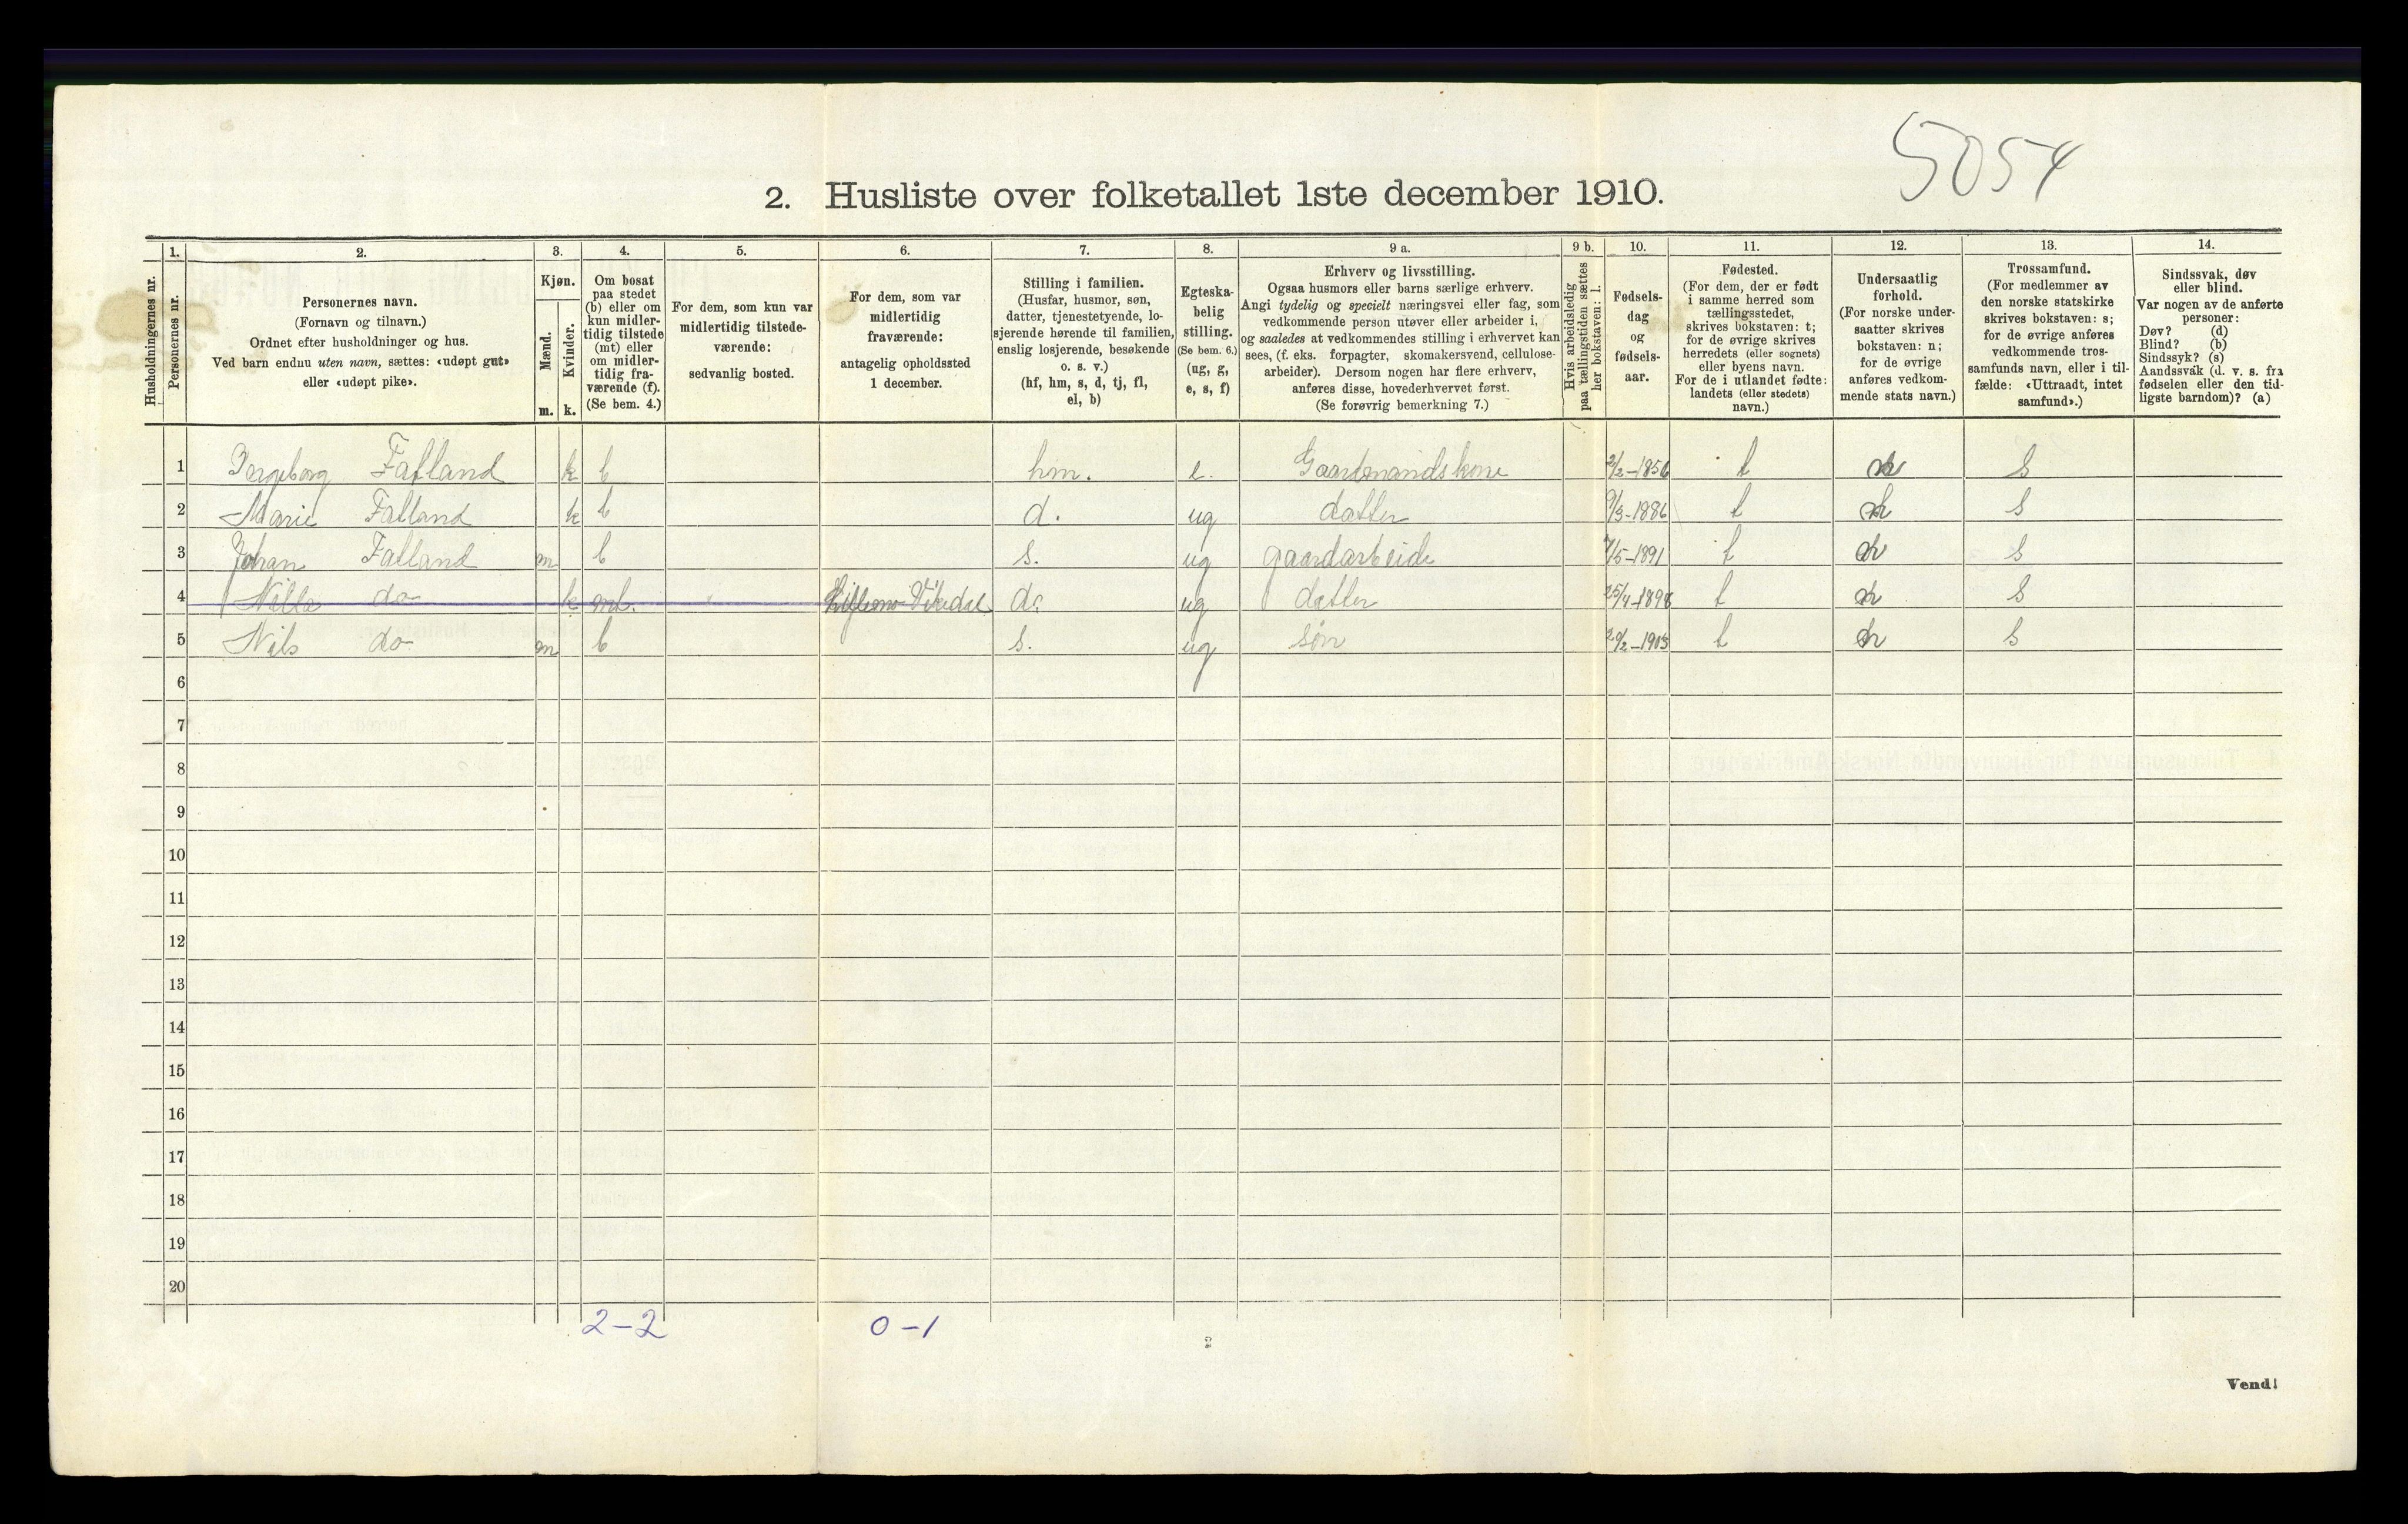 5054
2. Husliste over folketallet 1ste december 1910.
Husholdningernes nr.
1.
Personernes nr.
2.
Personernes navn.
(Fornavn og tilnavn.)
Ordnet efter husholdninger og hus.
Ved barn endnu uten navn, sættes: «udøpt gut»
eller «udøpt pike».
3.
Kjøn.
Mænd.
Kvinder.
m. k.
4.
Om bosat
paa stedet
(b) eller om
kun midler-
tidig tilstede
(mt) eller
om midler-
tidig fra-
værende (f).
(Se bem. 4.)
5.
For dem, som kun var
midlertidig tilstede-
værende:
sedvanlig bosted.
6.
For dem, som var
midlertidig
fraværende:
antagelig opholdssted
1 december.
7.
Stilling i familien.
(Husfar, husmor, søn,
datter, tjenestetyende, lo-
sjerende hørende til familien,
enslig losjerende, besøkende
o. s. v.)
(hf, hm, s, d, tj, fl,
el, b)
8.
Egteska-
belig
stilling.
(Se bem. 6.)
(ug, g,
e, s, f)
9 a.
Erhverv og livsstilling.
Ogsaa husmors eller barns særlige erhverv.
Angi tydelig og specielt næringsvei eller fag, som
vedkommende person utøver eller arbeider i,
og saaledes at vedkommendes stilling i erhvervet kan
sees, (f. eks. forpagter, skomakersvend, cellulose-
arbeider). Dersom nogen har flere erhverv,
anføres disse, hovederhvervet først.
(Se forøvrig bemerkning 7.)
9 b.
Hvis arbeidsledig
paa tællingstiden sættes
her bokstaven: l.
10.
Fødsels-
dag
og
fødsels-
aar.
11.
Fødested.
(For dem, der er født
i samme herred som
tællingsstedet,
skrives bokstaven: t;
for de øvrige skrives
herredets (eller sognets)
eller byens navn.
For de i utlandet fødte:
landets (eller stedets)
navn.)
12.
Undersaatlig
forhold.
(For norske under-
saatter skrives
bokstaven: n;
for de øvrige
anføres vedkom-
mende stats navn.)
13.
Trossamfund.
(For medlemmer av
den norske statskirke
skrives bokstaven: s;
for de øvrige anføres
vedkommende tros-
samfunds navn, eller i til-
fælde: «Uttraadt, intet
samfund».)
14.
Sindssvak, døv
eller blind.
Var nogen av de anførte
personer:
Døv? (d)
Blind? (b)
Sindssyk? (s)
Aandssvak (d. v. s. fra
fødselen eller den tid-
ligste barndom)? (a)
1 Ingeborg Fatland k b hm. e. Gaardmandskone 2/2-1856 t n s
2 Marie Fatland k b d. ug datter 9/3-1886 t n s
3 Johan Fatland m b s. ug gaardarbeide 7/5-1891 t n s
4 do k mt. Vikedal d. ug datter 25/4-1898 t n s
5 Nils do m b s. ug søn 29/2-1903 t n s
6
7
8
9
10
11
12
13
14
15
16
17
18
19
20
2-2 0-1
2
Vend!